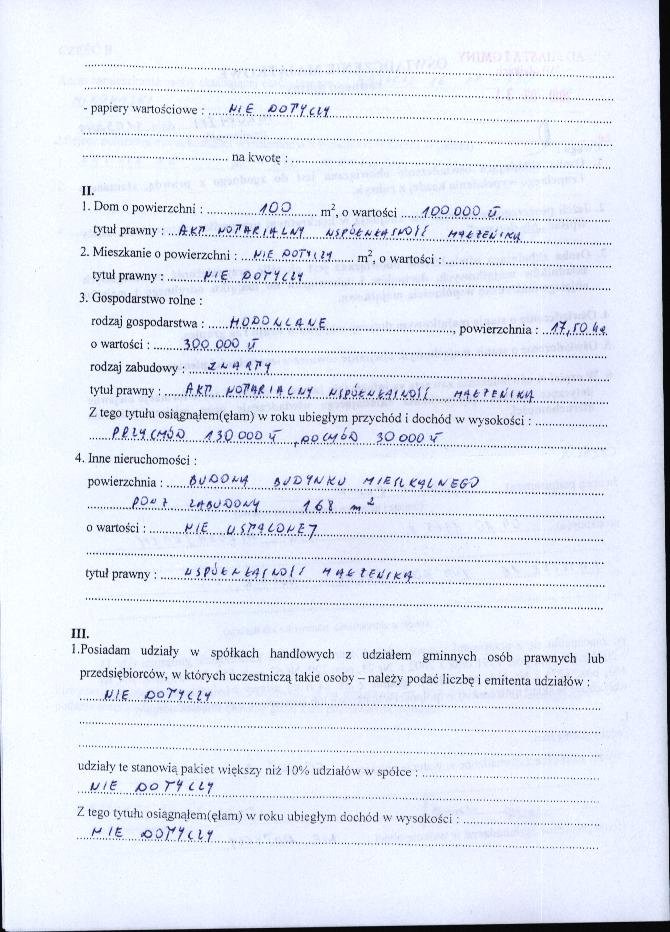 - papiery wartościowe : NIE DOTYCZY
na kwotę :
II.
1. Dom o powierzchni : 100 m², o wartości 100 000 zł
tytuł prawny : AKT NOTARIALNY WSPÓŁWŁASNOŚĆ MAŁŻEŃSKA
2. Mieszkanie o powierzchni : NIE DOTYCZY m², o wartości :
tytuł prawny : NIE DOTYCZY
3. Gospodarstwo rolne :
rodzaj gospodarstwa : HODOWLANE, powierzchnia : 17,50 ha
o wartości : 300 000 zł
rodzaj zabudowy : ZWARTY
tytuł prawny : AKT NOTARIALNY WSPÓŁWŁASNOŚĆ MAŁŻEŃSKA
Z tego tytułu osiągnąłem(ęłam) w roku ubiegłym przychód i dochód w wysokości :
PRZYCHÓD 130 000 zł, DOCHÓD 30 000 zł
4. Inne nieruchomości :
powierzchnia : BUDOWA BUDYNKU MIESZKALNEGO
POW. ZABUDOWY 168 m²
o wartości : NIE USTALONEJ
tytuł prawny : WSPÓŁWŁASNOŚĆ MAŁŻEŃSKA
III.
1.Posiadam udziały w spółkach handlowych z udziałem gminnych osób prawnych lub
przedsiębiorców, w których uczestniczą takie osoby – należy podać liczbę i emitenta udziałów :
NIE DOTYCZY
udziały te stanowią pakiet większy niż 10% udziałów w spółce :
NIE DOTYCZY
Z tego tytułu osiągnąłem(ęłam) w roku ubiegłym dochód w wysokości :
NIE DOTYCZY